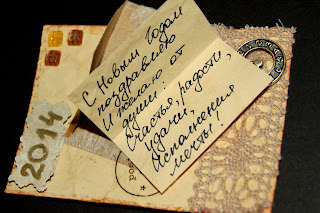 С Новым Годом
поздравляю
И желаю от
души:
Счастья, радости,
удачи,
Исполнения
мечты!
2014